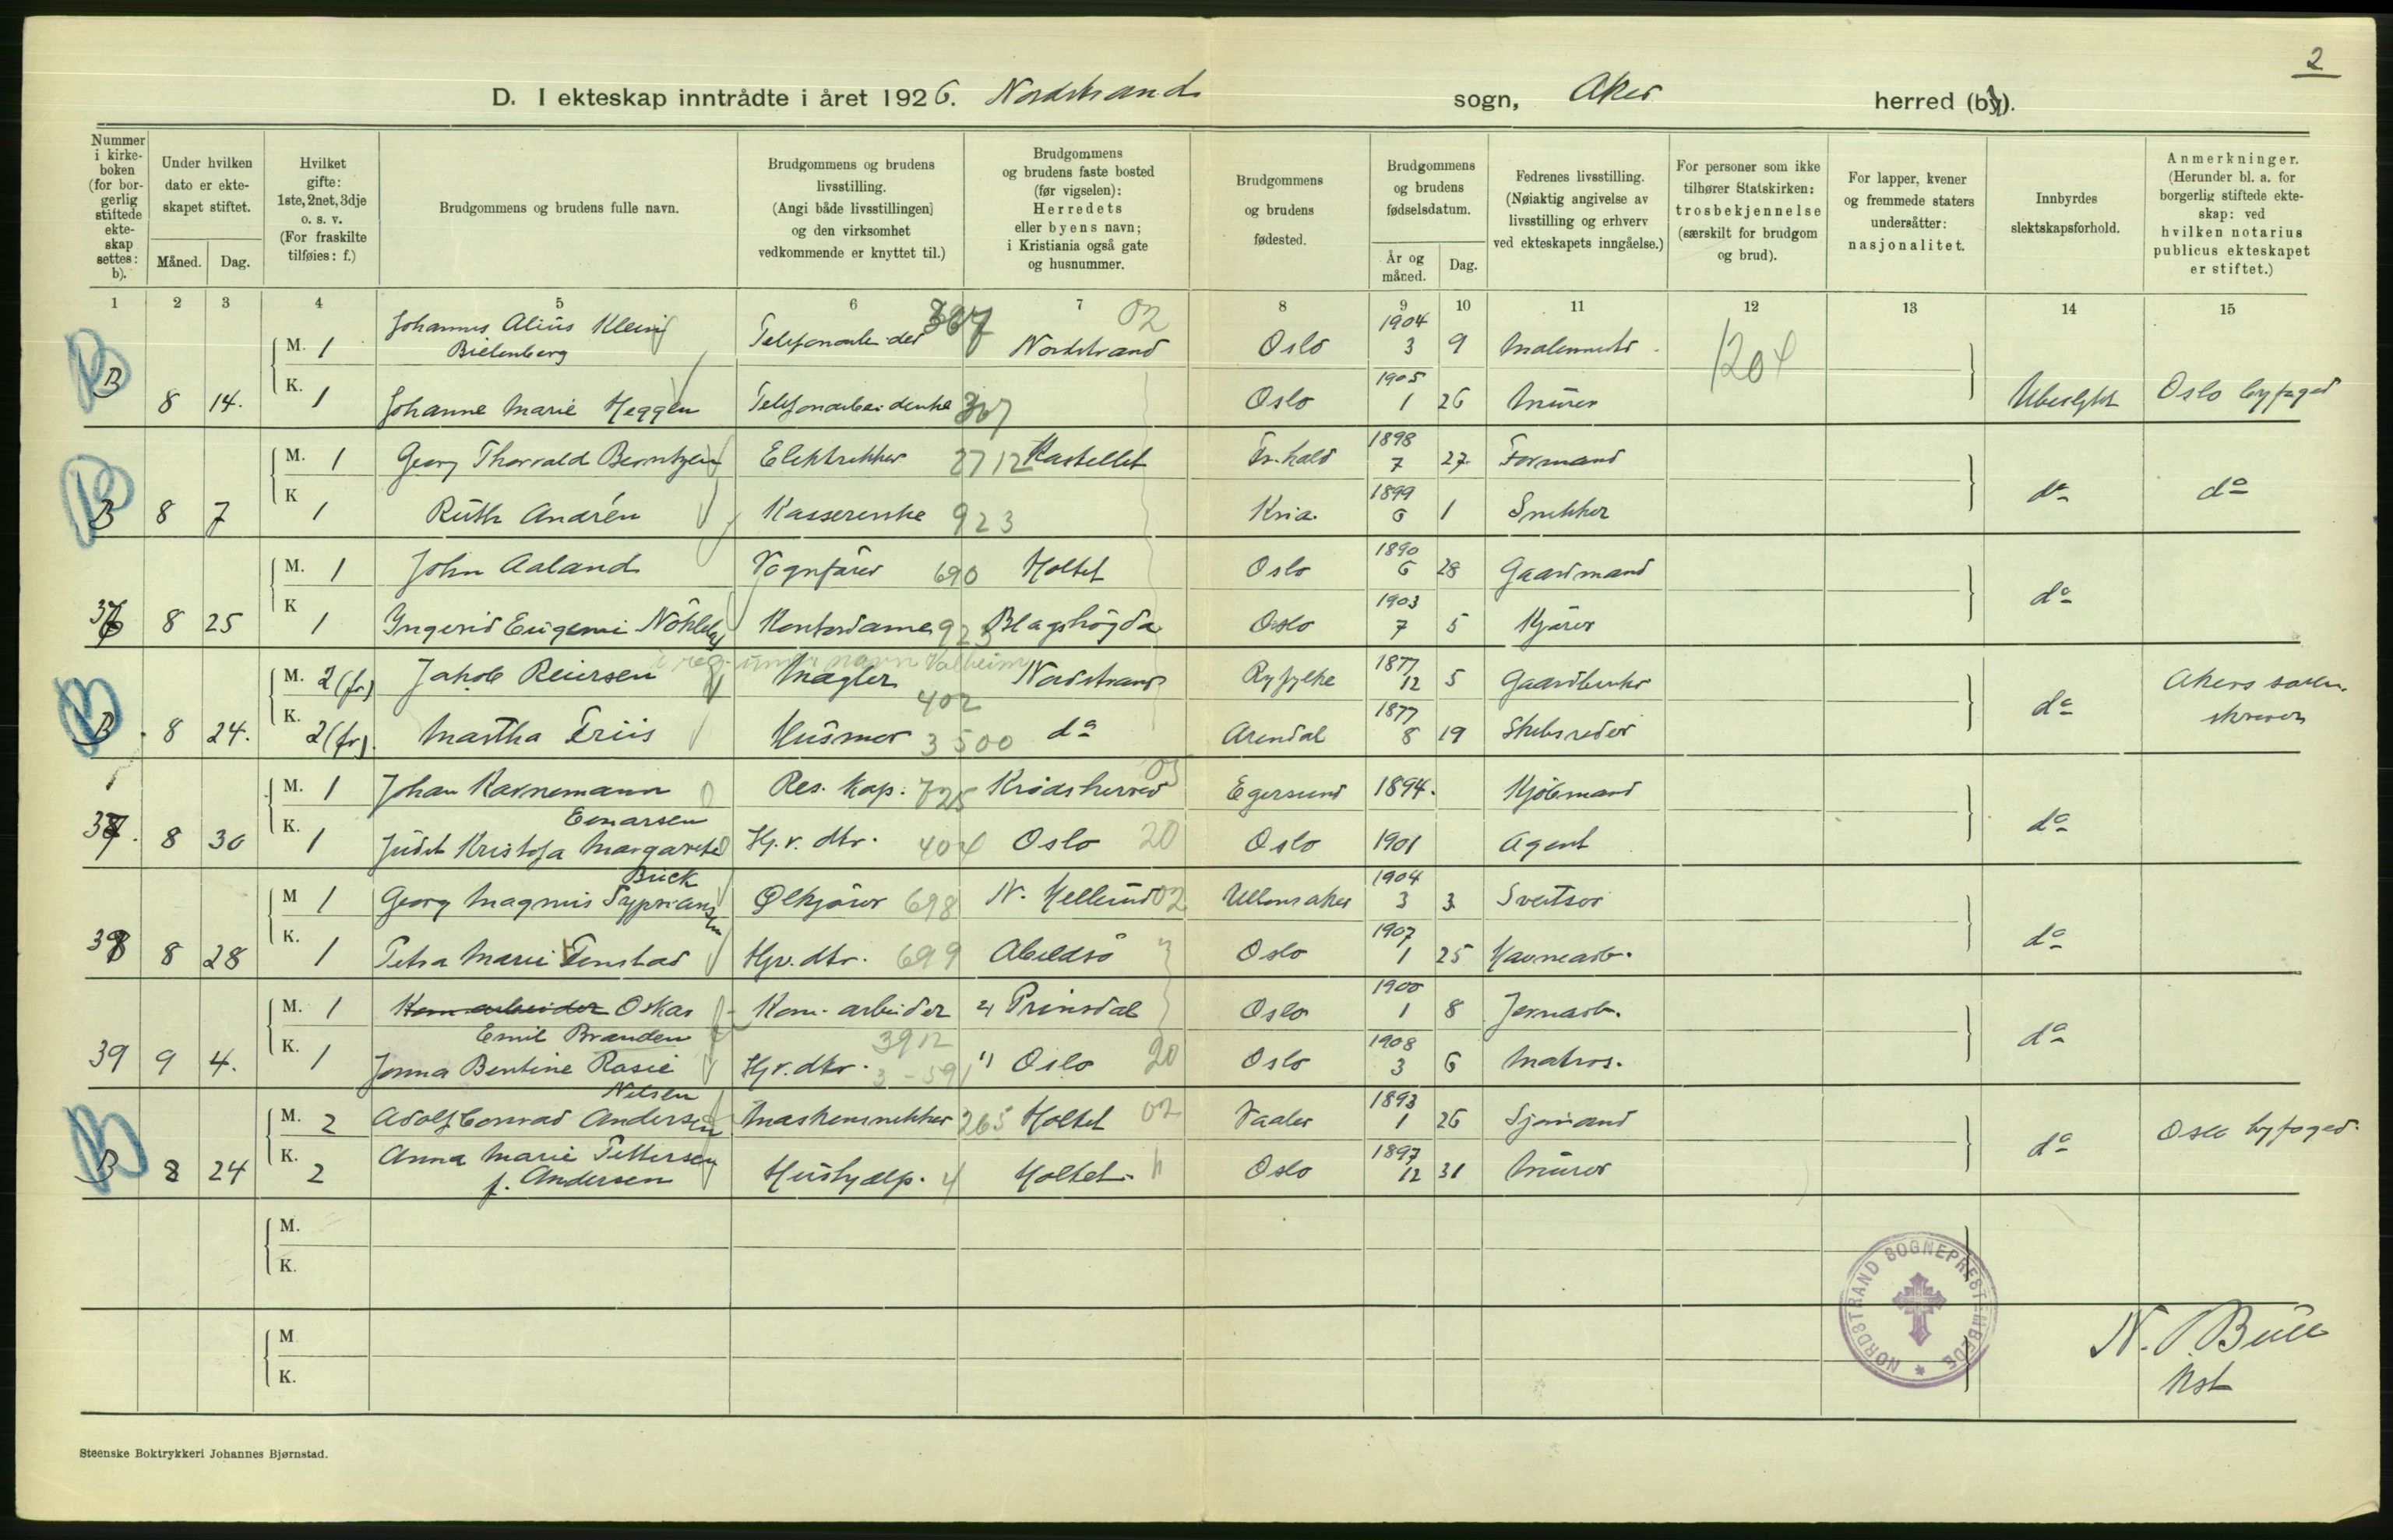 2
D. I ekteskap inntrådte i året 1926. Nordstrand sogn, Aker herred (by).
Nummer i kirke-boken (for bor-gerlig stiftede ekte-skap settes: b).
Under hvilken dato er ekte-skapet stiftet.
Måned. Dag.
Hvilket gifte: 1ste, 2net, 3dje o. s. v. (For fraskilte tilføies: f.)
Brudgommens og brudens fulle navn.
Brudgommens og brudens livsstilling. (Angi både livsstillingen] og den virksomhet vedkommende er knyttet til.)
Brudgommens og brudens faste bosted (før vigselen): Herredets eller byens navn; i Kristiania også gate og husnummer.
Brudgommens og brudens fødested.
Brudgommens og brudens fødselsdatum.
År og måned. Dag.
Fedrenes livsstilling. (Nøiaktig angivelse av livsstilling og erhverv ved ekteskapets inngåelse.)
For personer som ikke tilhører Statskirken: trosbekjennelse (særskilt for brudgom og brud).
For lapper, kvener og fremmede staters undersåtter: nasjonalitet.
Innbyrdes slektskapsforhold.
Anmerkninger. (Herunder bl. a. for borgerlig stiftede ekte-skap: ved hvilken notarius publicus ekteskapet er stiftet.)
1 2 3 4 5 6 7 8 9 10 11 12 13 14 15
M. 1 Johannes Alius Klein Bielenberg Telefonarbeider 367 Nordstrand 02 Oslo 1904 3 9 Malermester 1204
B 8 14. K. 1 Johanne Marie Heggen Telefonarbeiderske 367 Oslo 1905 1 26 Murer Ubeslgtet Oslo byfoged
M. 1 Georg Thorvald Berntzen Elektrikker 2712 Kastellet Fr.hald 1898 7 27 Formand
B 8 7 K 1 Ruth Andrén Kassererske 923 Kria. 1899 6 1 Snekker do do
M. 1 John Aaland Vognfører 690 Holtet Oslo 1890 6 28 Gaardmand
36 8 25 K 1 Ingerid Eugenie Kontordame 923 Oslo 1903 7 5 Kjører do
M. 2 (fr) Jakob Reiersen Mægler 402 Nordstrand Ryfylke 1877 12 5 Gaardbruker Akers soren-
B 8 24. K. 2 (fr). Martha Friis Husmor 3500 do Arendal 1877 8 19 Skibsreder do skriver
M. 1 Johan Ravnemann Res. kap. 725 Krødsherred 03 Egersund 1894. Kjøbmand
37. 8 30 K. 1 Judit Kristofa Margarethe Einarsen Hj.v. dtr. 404 Oslo 20 Oslo 1901 Agent do
M 1 Georg Magnus Sypriansen Bück Ølkjører 698 N. Hellerud 02 Ullensaker 1904 3 3 Sveitser
38 8 28 K. 1 Petra Marie Tenstad Hjv. dtr. 699 Abildsø Oslo 1907 1 25 Havnearb. do
M. 1 Kom arbeider Oskar Emil Branden Kom. arbeider 4 Prinsdal Oslo 1900 1 8 Jernarb.
39 9 4. K. 1 Jonna Bentine Rasie Nilsen Hjv. dtr. 3912 " Oslo 20 Oslo 1908 3 6 Matros. do
M. 2 Adolf Conrad Andersen Maskinsnekker 265 Holtet 02 Vaaler 1893 1 26 Sjømand
B 8 24 K. 2 Anna Marie Pettersen f. Andersen Hushjælp. 4 Holtet " Oslo 1897 12 31 Murer do Oslo byfoged.
M.
K.
M
K.
NORDSTRAND SOGNEPRESTEMBEDE
N. Bull
Kst
Steenske Boktrykkeri Johannes Bjørnstad.